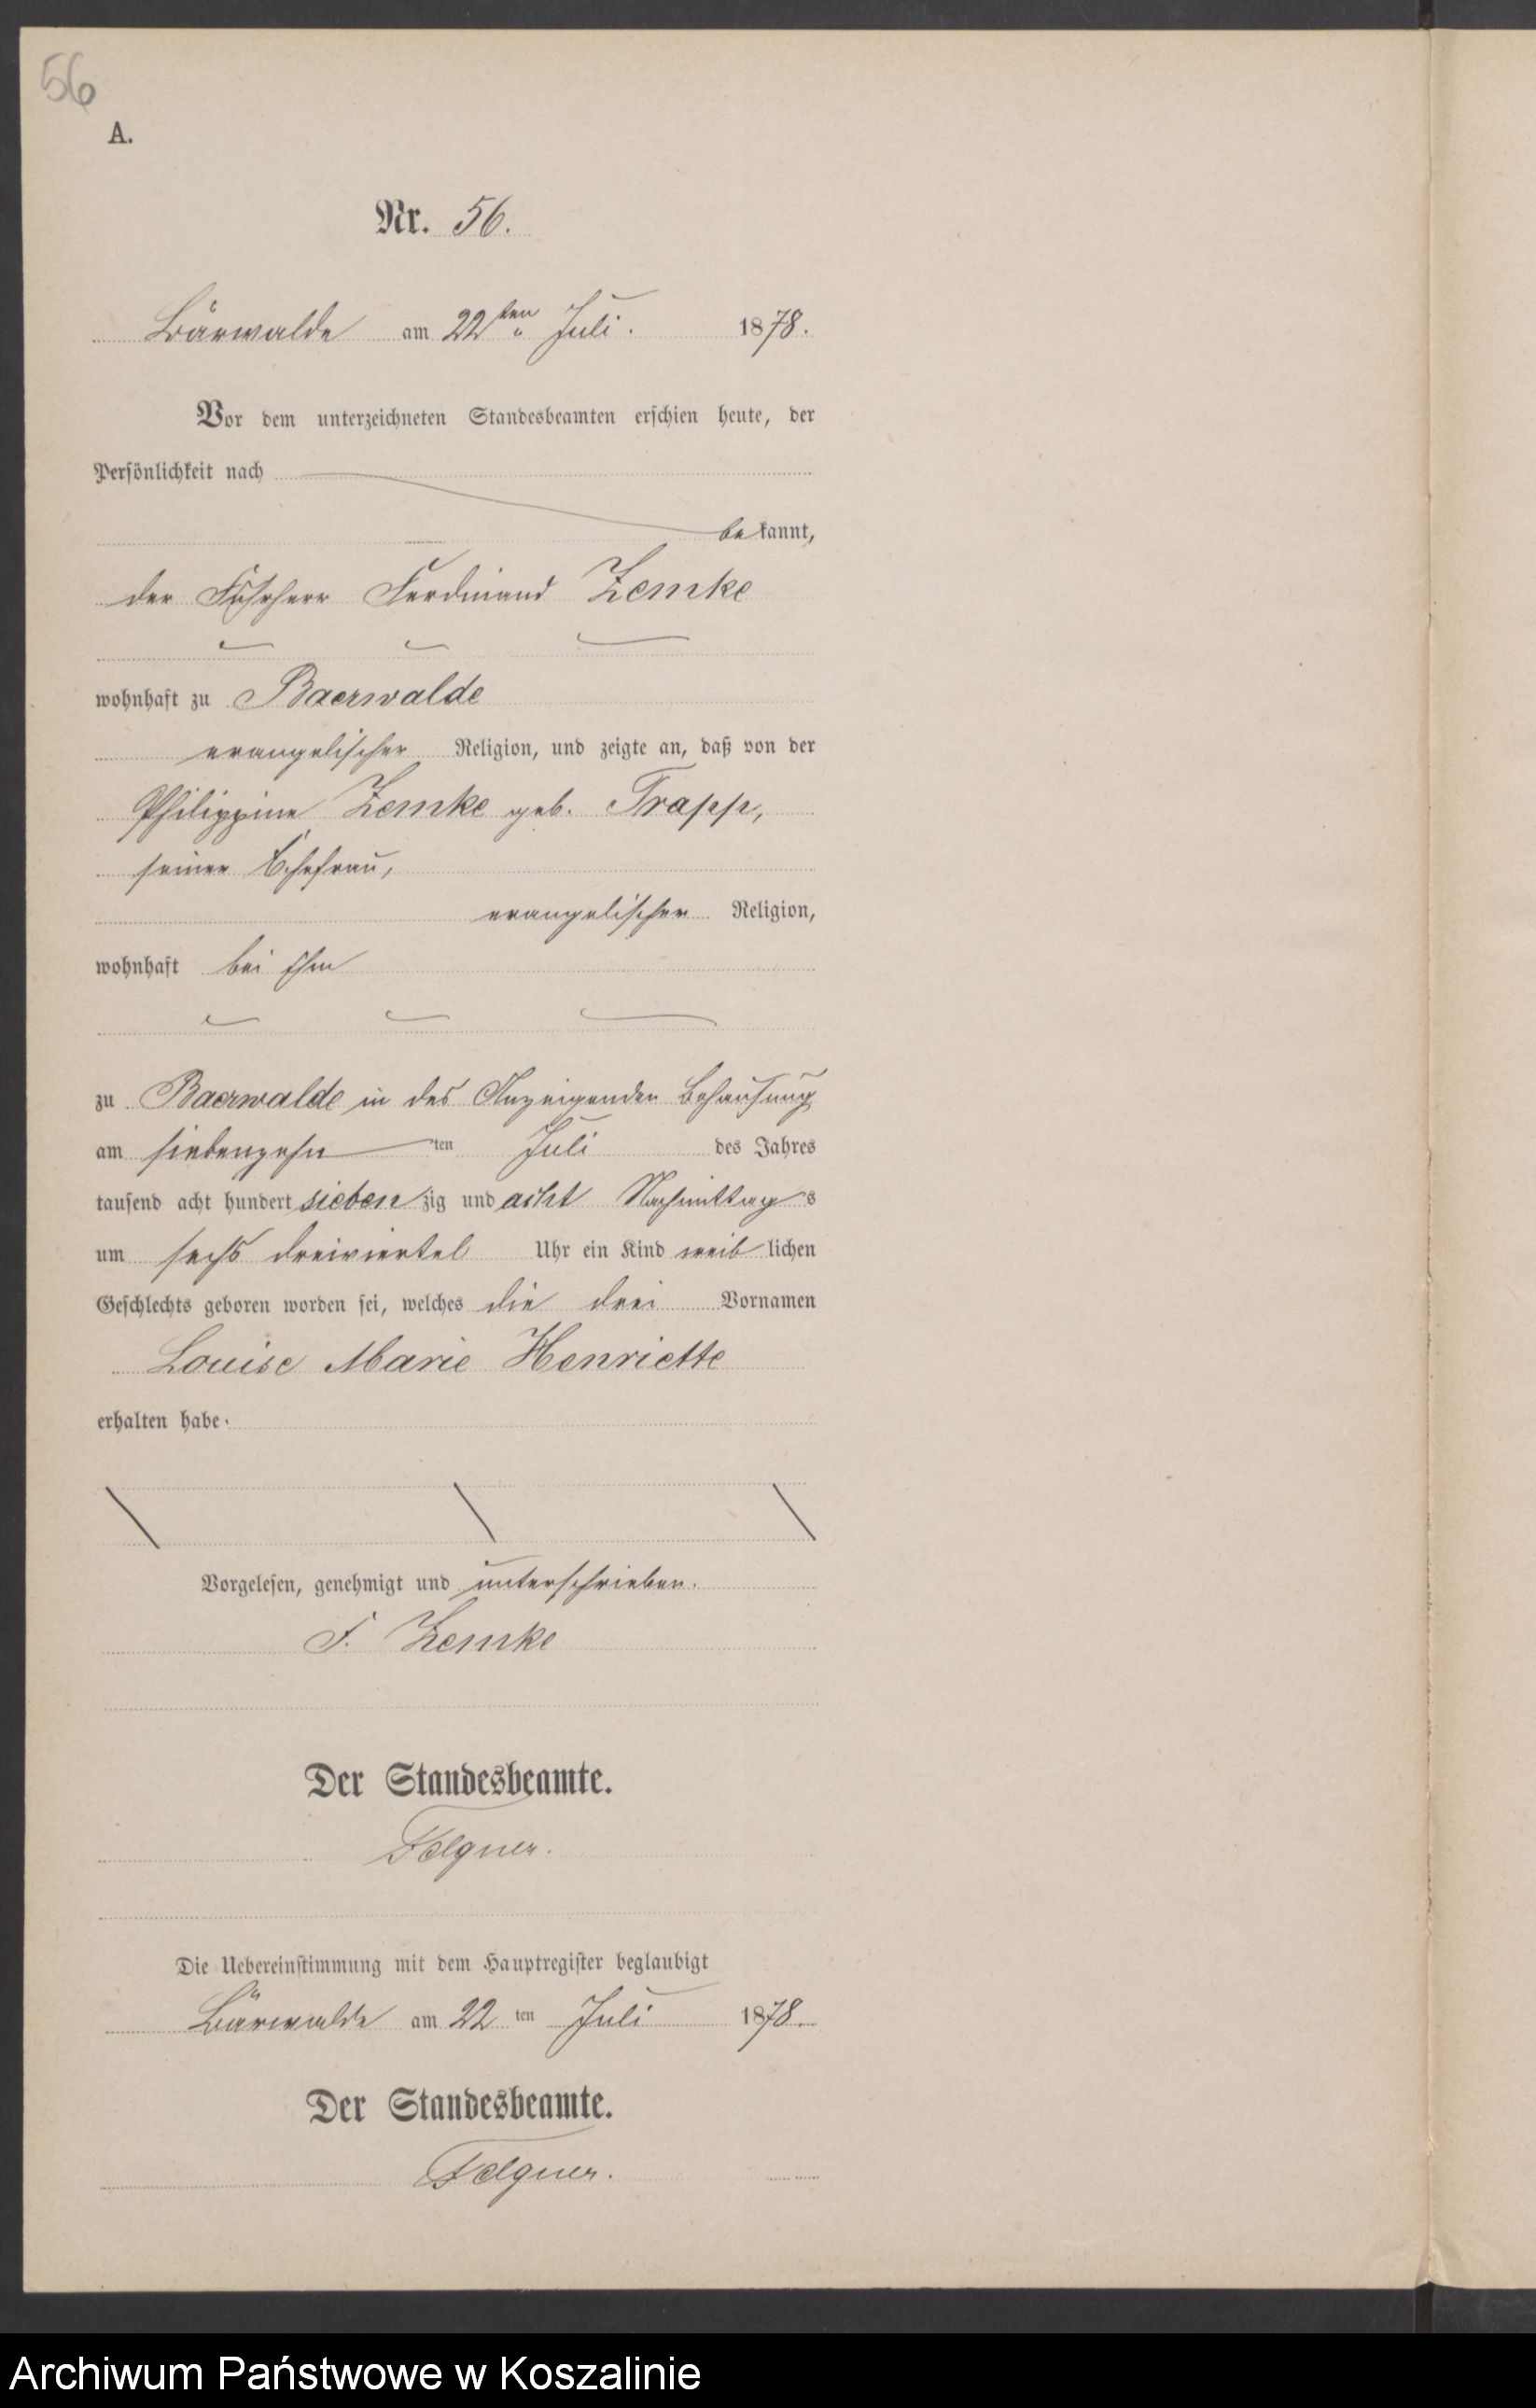 56
A.
Nr. 56.
Bärwalde am 22ten Juli. 1878.
Vor dem unterzeichneten Standesbeamten erschien heute, der
Persönlichkeit nach
be kannt,
der Fuhrherr Ferdinand Zemke
wohnhaft zu Baerwalde
evangelischer Religion, und zeigte an, daß von der
Philippine Zemke geb. Trapp,
seiner Ehefrau,
evangelischer Religion,
wohnhaft bei ihm
zu Baerwalde in des Anzeigenden Behausung
am siebenzehn ten Juli des Jahres
tausend acht hundert sieben zig und acht Nachmittag s
um sechs dreiviertel Uhr ein Kind weib lichen
Geschlechts geboren worden sei, welches die drei Vornamen
Louise Marie Henriette
erhalten habe.
Vorgelesen, genehmigt und unterschrieben.
F. Zemke
Der Standesbeamte.
Felgner.
Die Uebereinstimmung mit dem Hauptregister beglaubigt
Bärwalde am 22 ten Juli 1878.
Der Standesbeamte.
Felgner.
Archiwum Państwowe w Koszalinie